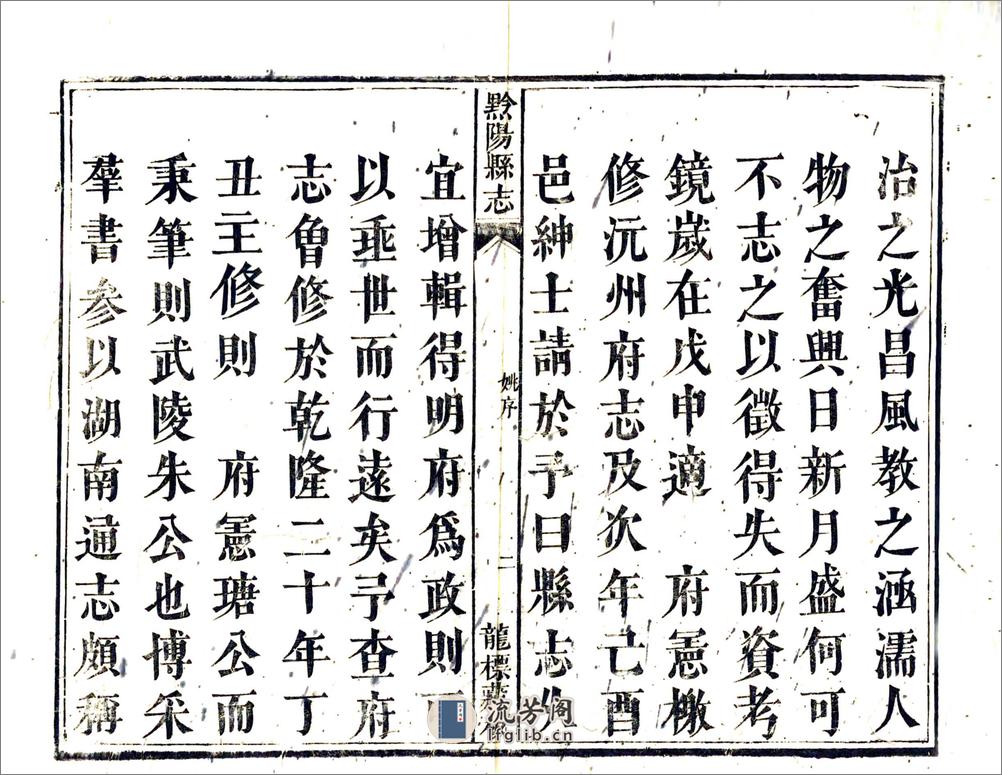 治之光昌風教之涵濡人
物之奮興日新月盛何可
不志之以徵得失而資考
鏡歲在戊申適　府憲檄
修沅州府志及次年己酉
邑紳士請於予曰縣志
黔陽縣志
姚序
二
龍標
宜增輯得明府爲政則
以垂世而行遠矣予查府
志魯修於乾隆二十年丁
丑主修則　府憲瑭公而
秉筆則武陵朱公也博采
羣書參以湖南通志頗稱
流芳阁
glib.cn